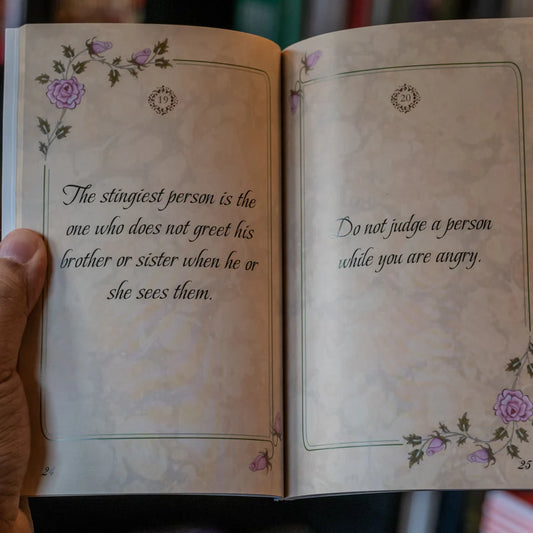 19
The stingiest person is the
one who does not greet his
brother or sister when he or
she sees them.
24
20
Do not judge a person
while you are angry.
25